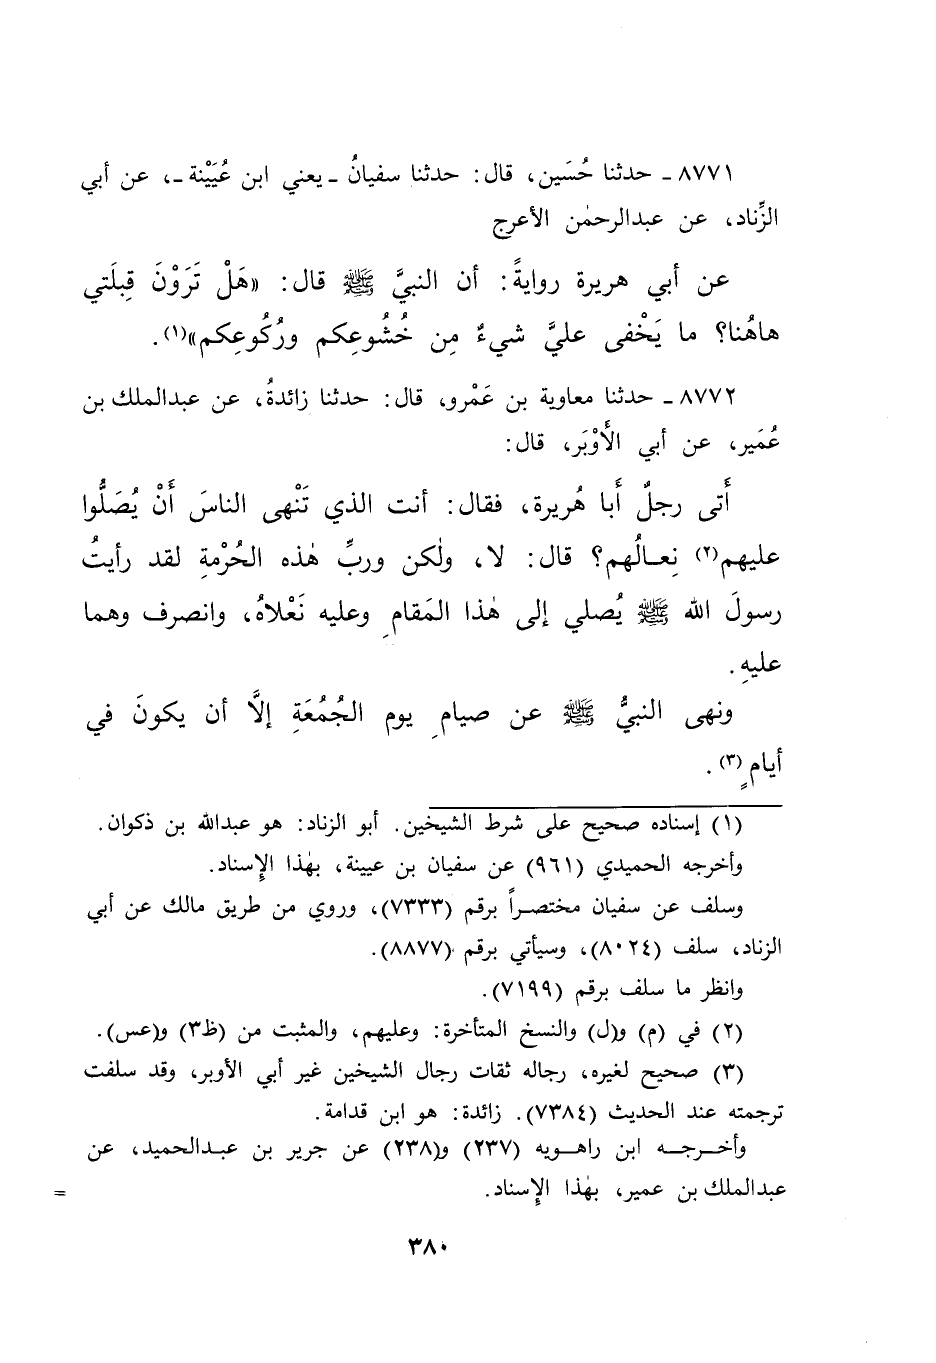 ٨٧٧١ ـ حدثنا حُسَين، قال: حدثنا سفيانُ ـ يعني ابن عُيَيْنة ـ، عن أبي
الزِّناد، عن عبدالرحمٰن الأعرج
عن أبي هريرة روايةً: أن النبيَّ ﷺ قال: «هَلْ تَرَوْنَ قِبلَتي
هاهُنا؟ ما يَخْفى عليَّ شيءٌ مِن خُشُوعِكم ورُكُوعِكم»(١).
٨٧٧٢ ـ حدثنا معاوية بن عَمْرو، قال: حدثنا زائدةُ، عن عبدالملك بن
عُمَير، عن أبي الأَوْبَر، قال:
أَتى رجلٌ أَبا هُريرة، فقال: أنت الذي تَنْهى الناسَ أَنْ يُصَلُّوا
عليهم(٢) نِعالُهم؟ قال: لا، ولٰكن وربِّ هٰذه الحُرْمةِ لقد رأيتُ
رسولَ الله ﷺ يُصلي إلى هٰذا المَقامِ وعليه نَعْلاهُ، وانصرف وهما
عليهِ.
ونهى النبيُّ ﷺ عن صيامِ يوم الجُمُعَةِ إلَّا أن يكونَ في
أيامٍ(٣).
(١) إسناده صحيح على شرط الشيخين. أبو الزناد: هو عبدالله بن ذكوان.
وأخرجه الحميدي (٩٦١) عن سفيان بن عيينة، بهٰذا الإِسناد.
وسلف عن سفيان مختصراً برقم (٧٣٣٣)، وروي من طريق مالك عن أبي
الزناد، سلف (٨٠٢٤)، وسيأتي برقم (٨٨٧٧).
وانظر ما سلف برقم (٧١٩٩).
(٢) في (م) و(ل) والنسخ المتأخرة: وعليهم، والمثبت من (ظ٣) و(عس).
(٣) صحيح لغيره، رجاله ثقات رجال الشيخين غير أبي الأوبر، وقد سلفت
ترجمته عند الحديث (٧٣٨٤). زائدة: هو ابن قدامة.
وأخرجه ابن راهويه (٢٣٧) و(٢٣٨) عن جرير بن عبدالحميد، عن
عبدالملك بن عمير، بهٰذا الإِسناد.
=
٣٨٠